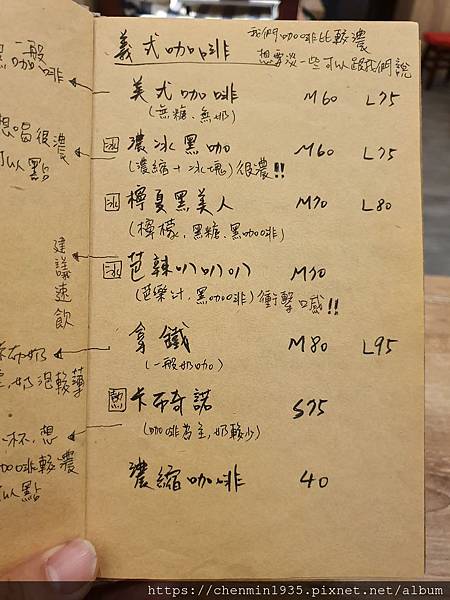 義式咖啡
我們咖啡比較濃
想要淡一些可以跟我們說
美式咖啡 M60 L75
(無糖、無奶)
冰 濃冰黑咖 M60 L75
(濃縮+冰塊)很濃!!
冰 檸夏黑美人 M70 L80
(檸檬、黑糖、黑咖啡)
冰 芭辣叭叭叭 M70
(芭樂汁、黑咖啡)衝擊口感!!
拿鐵 M80 L95
(一般奶咖)
熱 卡布奇諾 S75
(咖啡為主,奶較少)
濃縮咖啡 40
一般
黑咖啡
想喝很濃
可以點
建議速飲
奶泡較薄
杯,想
咖啡較濃
以點
https://chenmin1935.pixnet.net/album